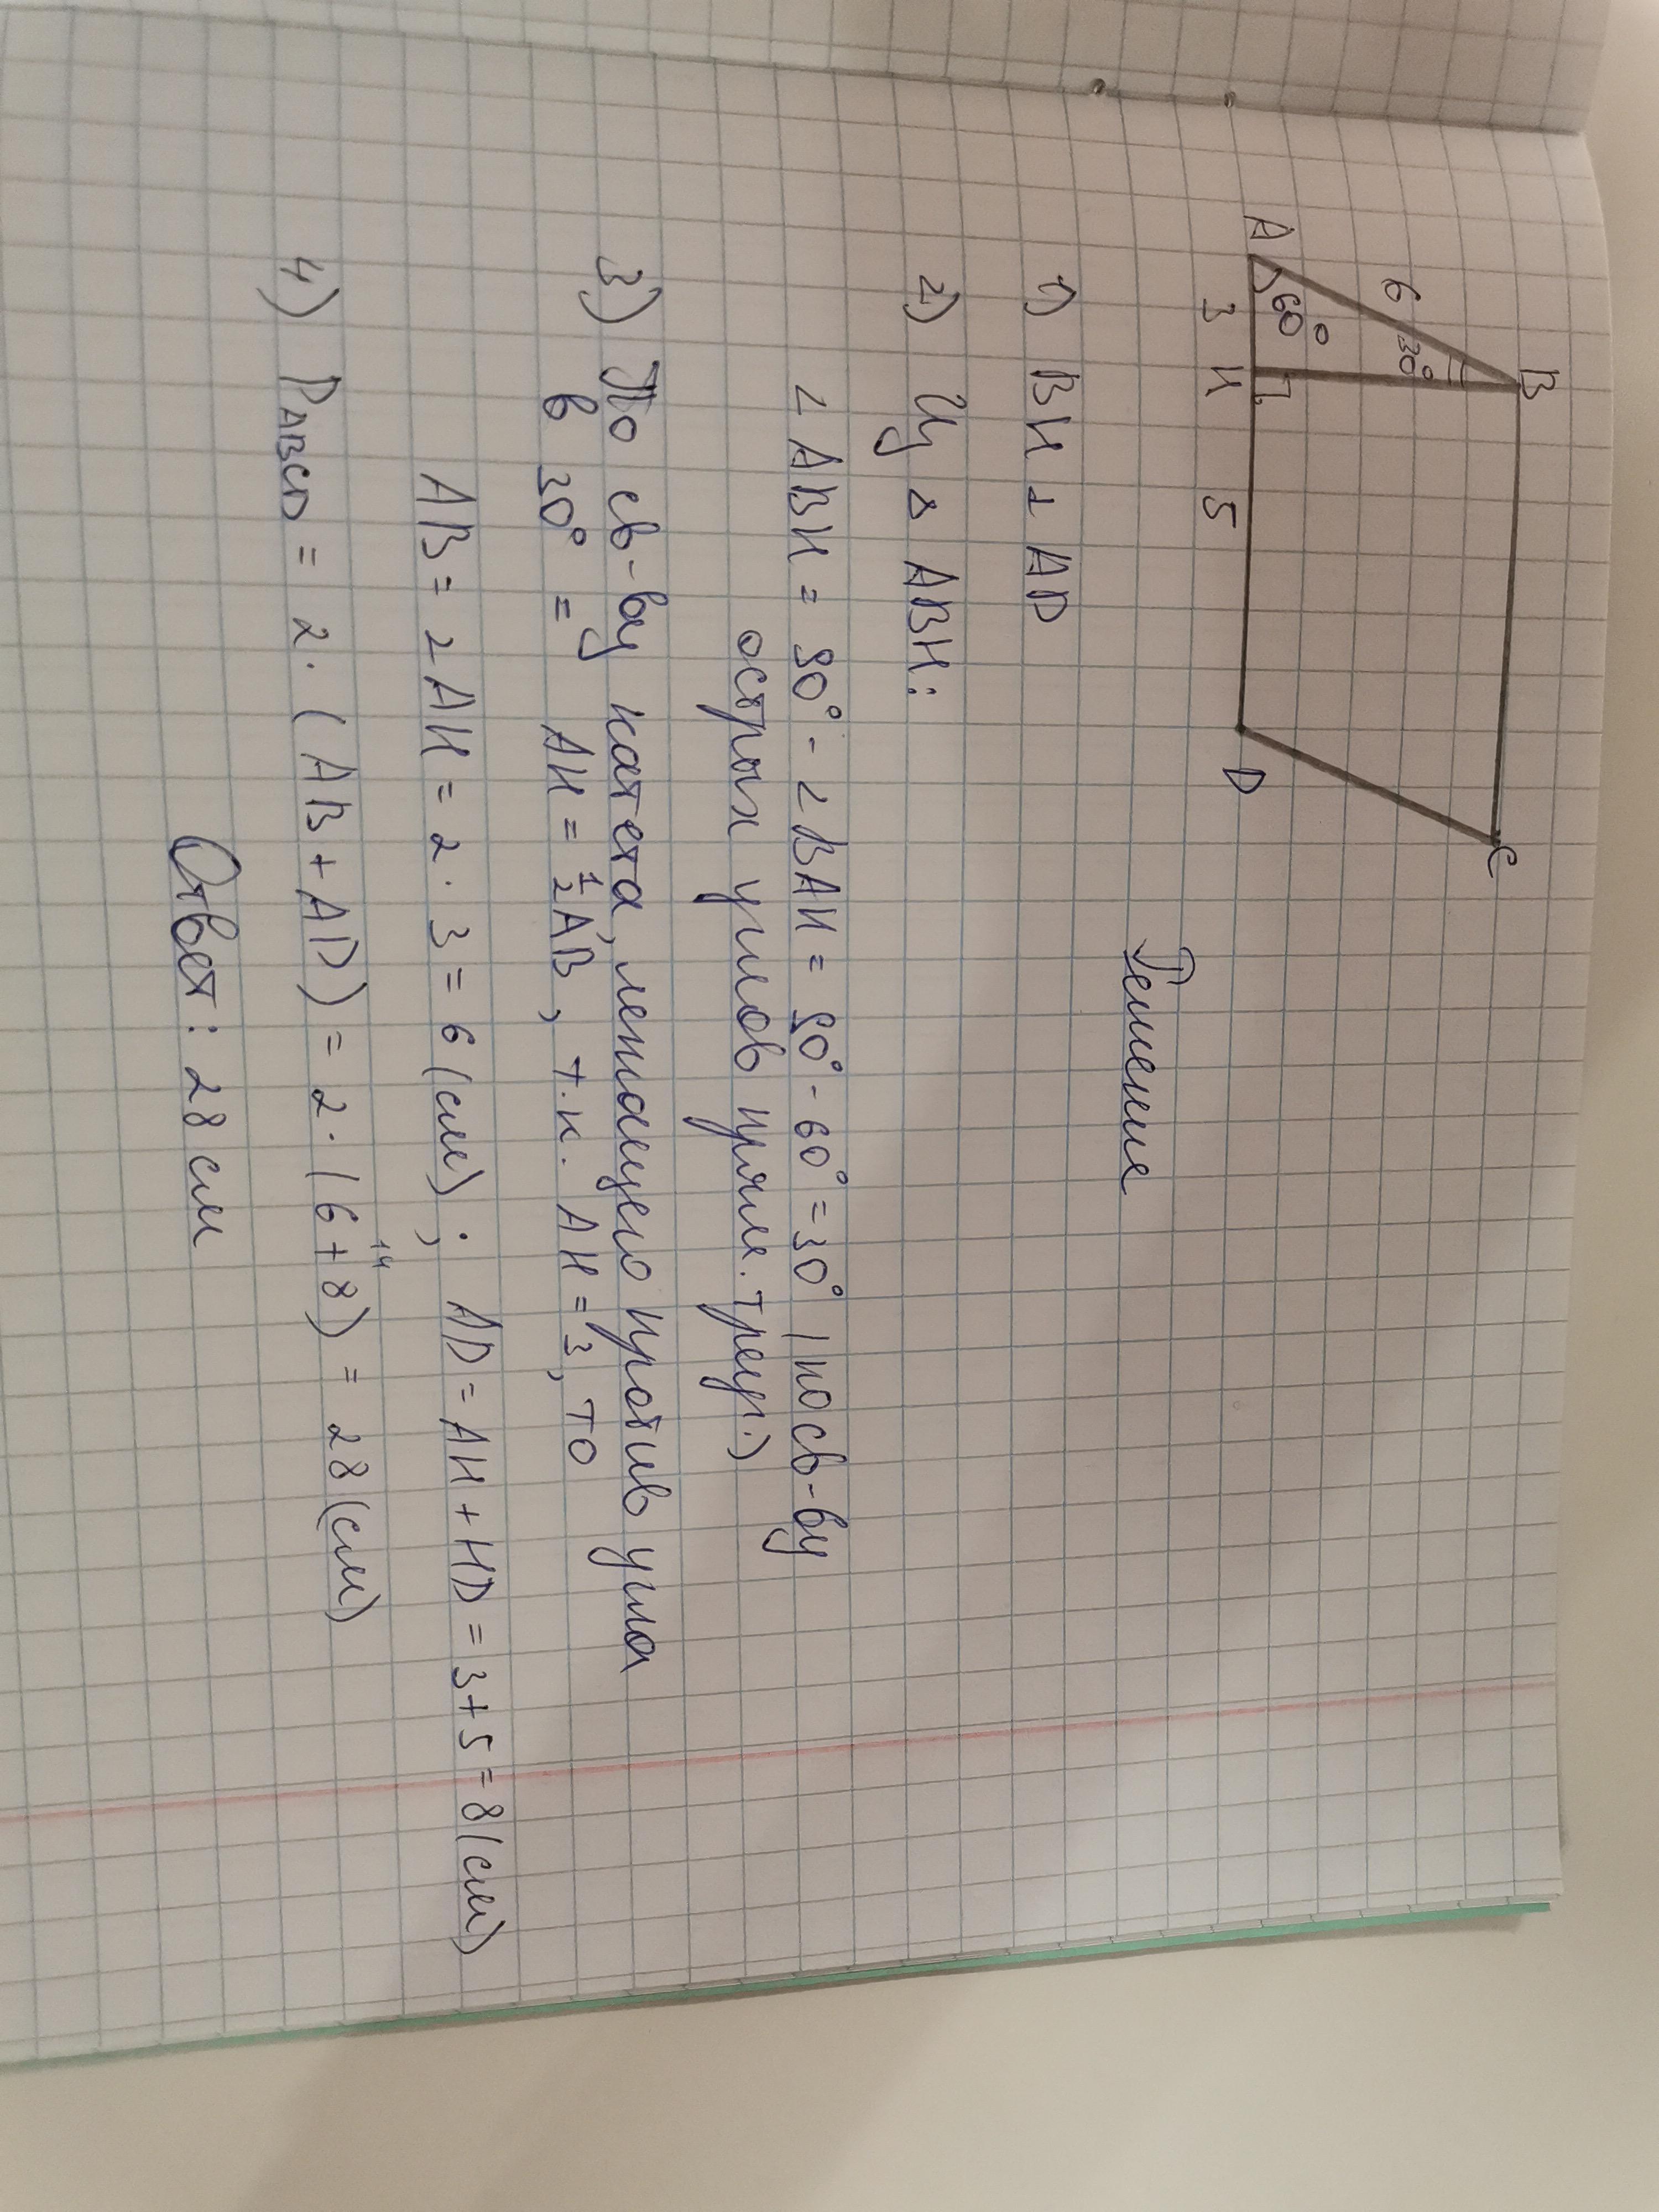 B
C
6
30°
60°
A
H
D
3
5
Решение
1) BH ⊥ AD
2) Из △ ABH:
∠ ABH = 90° - ∠ BAH = 90° - 60° = 30° (по св-ву
острых углов прям. треуг.)
3) По св-ву катета, лежащего против угла
в 30° = AH = 1/2 AB, т.к. AH = 3, то
AB = 2AH = 2 · 3 = 6 (см); AD = AH + HD = 3+5 = 8 (см)
14
4) PABCD = 2 · (AB + AD) = 2 · (6 + 8) = 28 (см)
Ответ: 28 см